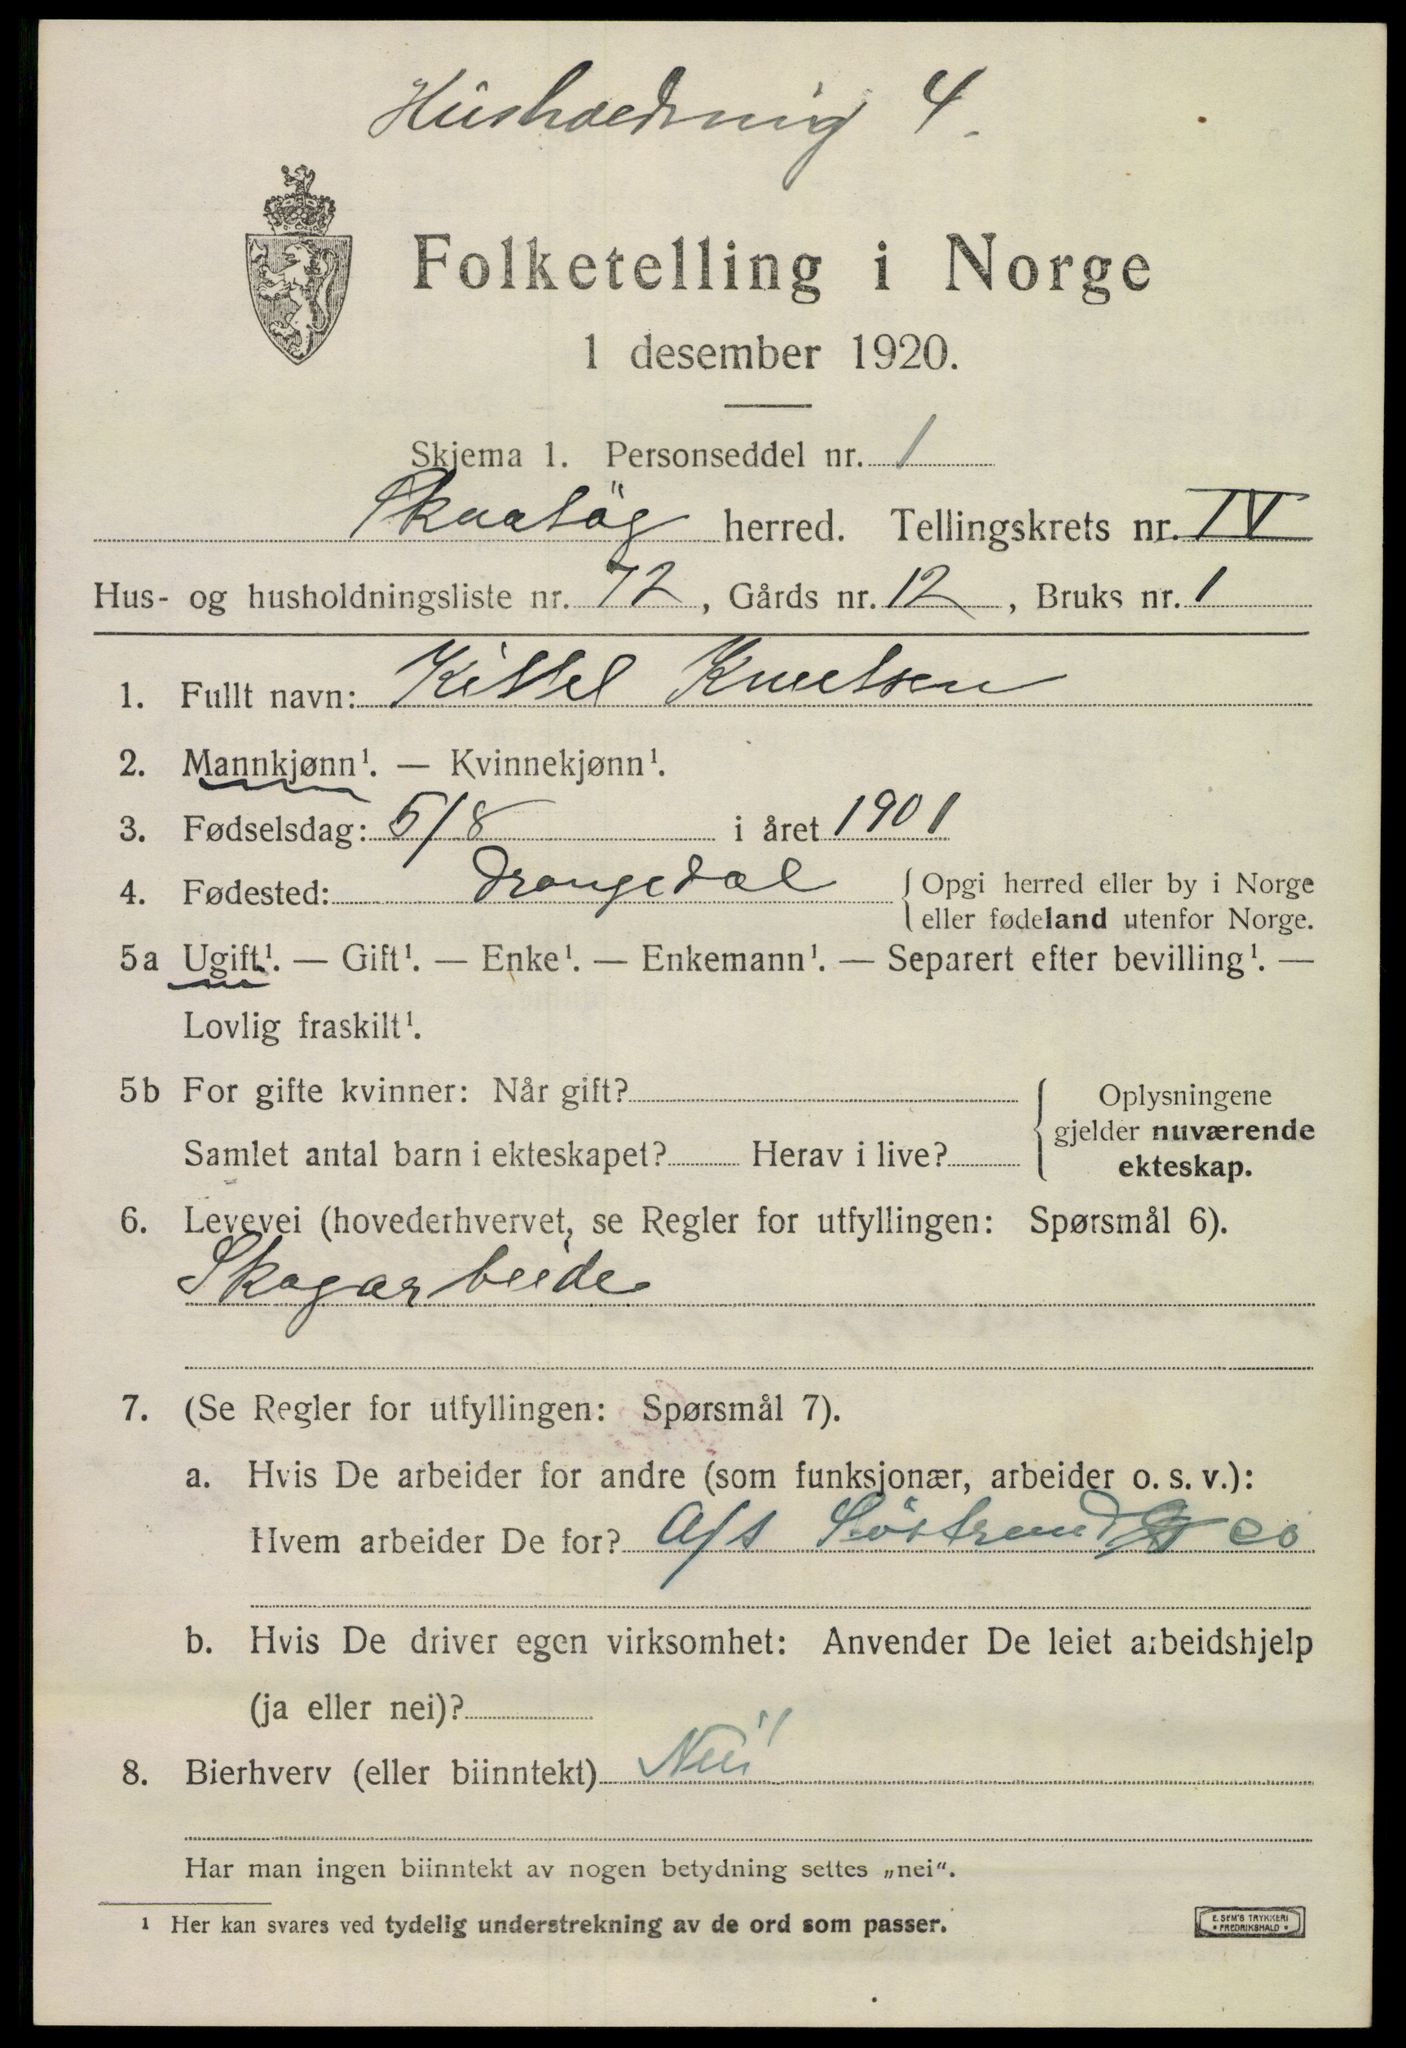 Husholdning 4.
Folketelling i Norge
1 desember 1920.
Skjema 1. Personseddel nr. 1
Skaatöy herred. Tellingskrets nr. IV
Hus- og husholdningsliste nr. 72, Gårds nr. 12, Bruks nr. 1
1. Fullt navn: Kittel Knutsen
2. Mannkjønn¹. — Kvinnekjønn¹.
3. Fødselsdag: 5/8 i året 1901
4. Fødested: Drangedal { Opgi herred eller by i Norge
eller fødeland utenfor Norge.
5a Ugift¹. — Gift¹. — Enke¹. — Enkemann¹. — Separert efter bevilling¹. —
Lovlig fraskilt¹.
5b For gifte kvinner: Når gift? { Oplysningene
gjelder nuværende
Samlet antal barn i ekteskapet? Herav i live?
ekteskap.
6. Levevei (hovederhvervet, se Regler for utfyllingen: Spørsmål 6).
Skogarbeide
7. (Se Regler for utfyllingen: Spørsmål 7).
a. Hvis De arbeider for andre (som funksjonær, arbeider o. s. v.):
Hvem arbeider De for? A/S co
b. Hvis De driver egen virksomhet: Anvender De leiet arbeidshjelp
(ja eller nei)?
8. Bierhverv (eller biinntekt) Nei
Har man ingen biinntekt av nogen betydning settes „nei“.
¹ Her kan svares ved tydelig understrekning av de ord som passer.
E. SEM'S TRYKKERI
* FREDRIKSHALD *